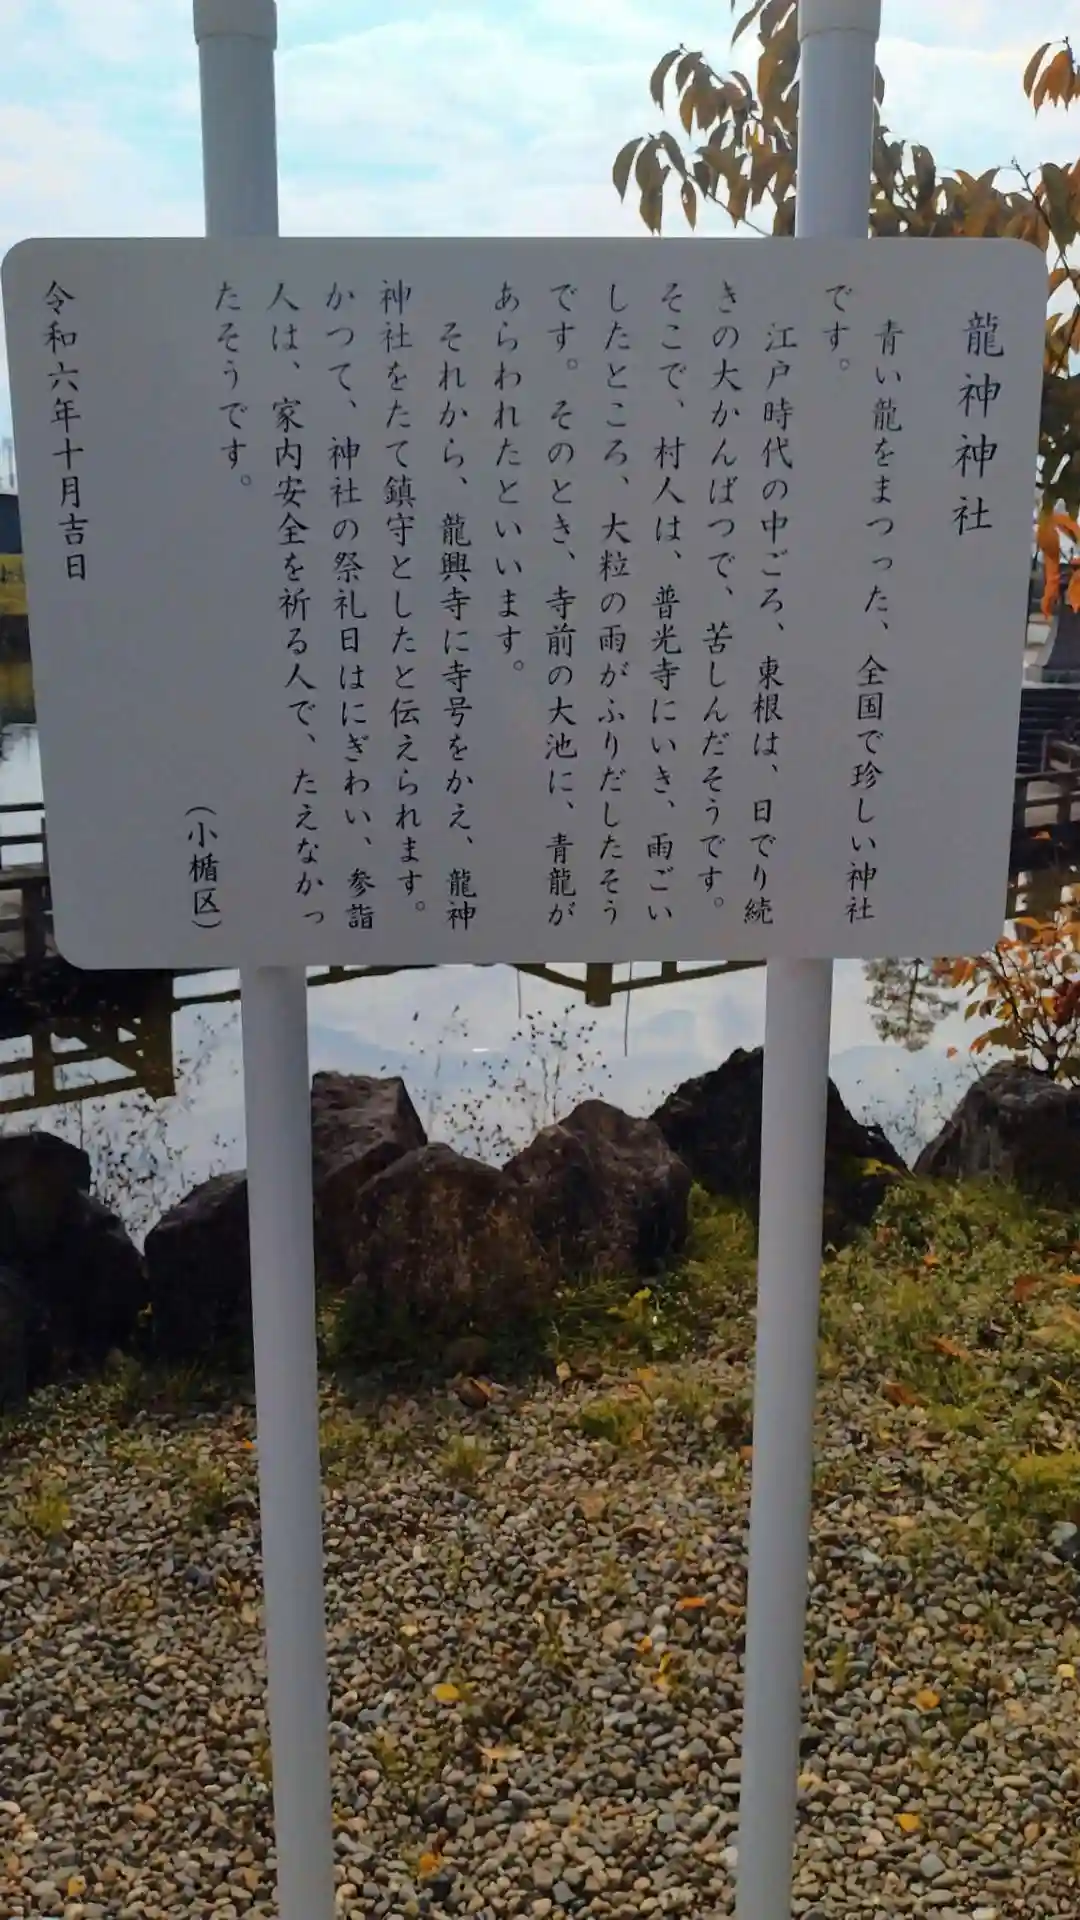 龍神神社
青い龍をまつった、全国で珍しい神社
です。
江戸時代の中ごろ、東根は、日でり続
きの大かんばつで、苦しんだそうです。
そこで、村人は、普光寺にいき、雨ごい
したところ、大粒の雨がふりだしたそう
です。そのとき、寺前の大池に、青龍が
あらわれたといいます。
それから、龍興寺に寺号をかえ、龍神
神社をたて鎮守としたと伝えられます。
かつて、神社の祭礼日はにぎわい、参詣
人は、家内安全を祈る人で、たえなかっ
たそうです。
（小楯区）
令和六年十月吉日